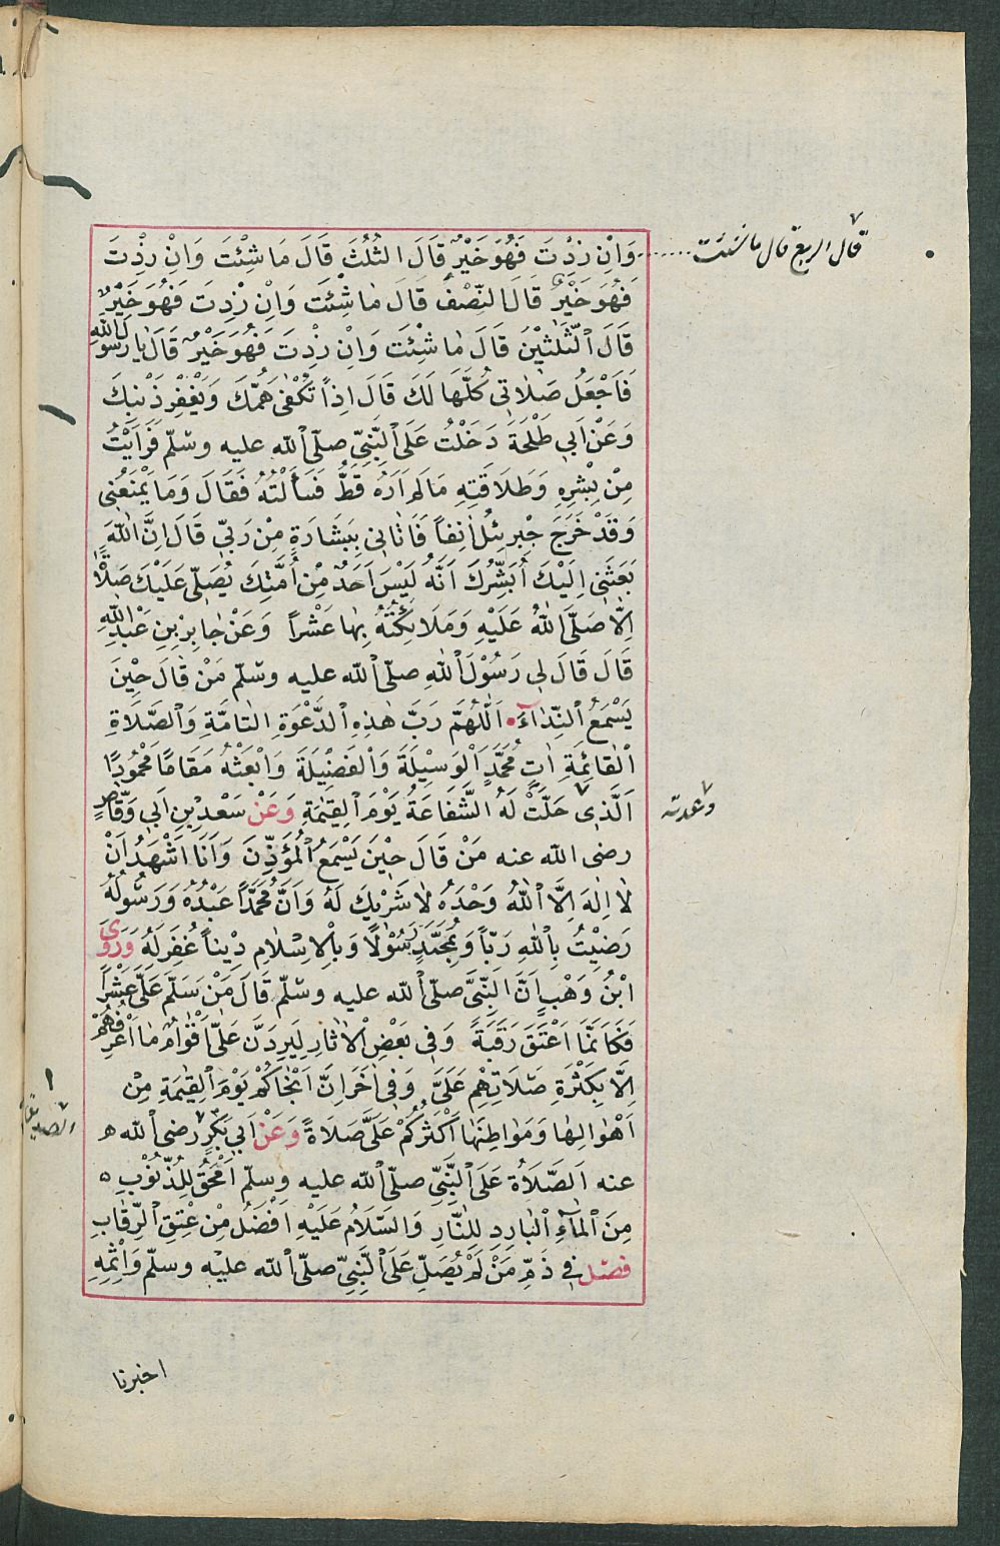 قال الربع قال ما شئت
وَاِنْ زِدْتَ فَهُوَ خَيْرٌ قَالَ الثُلُثَ قَالَ مَا شِئْتَ وَاِنْ زِدْتَ
فَهُوَ خَيْرٌ قَالَ النِّصْفَ قَالَ مَا شِئْتَ وَاِنْ زِدْتَ فَهُوَ خَيْرٌ
قَالَ الثُّلُثَيْنِ قَالَ مَا شِئْتَ وَاِنْ زِدْتَ فَهُوَ خَيْرٌ قَالَ يا رسول اللّٰهِ
فَاَجْعَلُ صَلَاتِى كُلَّهَا لَكَ قَالَ اِذاً تُكْفٰى هَمَّكَ وَيُغْفَرُ ذَنْبُكَ
وَعَنْ اَبِي طَلْحَةَ دَخَلْتُ عَلَى النَّبِىِّ صلّى اللّه عليه وسلّم فَرَاَيْتُ
مِنْ بِشْرِهِ وَطَلَاقَتِهِ مَا لَمْ اَرَهُ قَطُّ فَسَأَلْتُهُ فَقَالَ وَمَا يَمْنَعُنِى
وَقَدْ خَرَجَ جِبْرِئيلُ اٰنِفاً فَاَتَانِى بِبَشَارَةٍ مِنْ رَبِّى قَالَ اِنَّ اللّٰهَ
بَعَثَنِى اِلَيْكَ اُبَشِّرُكَ اَنَّهُ لَيْسَ اَحَدٌ مِنْ اُمَّتِكَ يُصَلِّى عَلَيْكَ صَلَاةً
اِلَّا صَلَّى اللّٰهُ عَلَيْهِ وَمَلَائِكَتُهُ بِهَا عَشْراً وَعَنْ جَابِرِ بْنِ عَبْدِ اللّٰهِ
قَالَ قَالَ لِى رَسُولُ اللّٰهِ صلّى اللّه عليه وسلّم مَنْ قَالَ حِينَ
يَسْمَعُ النِّدَاءَ اَللّٰهُمَّ رَبَّ هٰذِهِ الدَّعْوَةِ التَامَّةِ وَالصَّلَاةِ
الْقَائِمَةِ اٰتِ مُحَمَّدٍ الْوَسِيلَةَ وَالْفَضِيلَةَ وَابْعَثْهُ مَقَامًا مَحْمُودًا
اَلَّذِى حَلَّتْ لَهُ الشَّفَاعَةُ يَوْمَ الْقِيٰمَةِ وَعَنْ سَعْدِ بْنِ اَبِى وَقَّاصٍ
وعدته
رضى اللّه عنه مَنْ قَالَ حِينَ يَسْمَعُ الْمُؤَذِّنَ وَاَنَا اَشْهَدُ اَنْ
لَا اِلٰهَ اِلَّا اللّٰهُ وَحْدَهُ لَا شَرِيكَ لَهُ وَاَنَّ مُحَمَّدًا عَبْدُهُ وَرَسُولُهُ
رَضِيتُ بِاللّٰهِ رَبّاً وَبِمُحَمَّدٍ رَسُولًا وَبِالْاِسْلَامِ دِيناً غُفِرَ لَهُ وَرَوَى
ابْنُ وَهْبٍ اَنَّ النَّبِىَّ صلّى اللّه عليه وسلّم قَالَ مَنْ سَلَّمَ عَلَىَّ عَشْراً
فَكَاَنَّمَا اَعْتَقَ رَقَبَةً وَفِى بَعْضِ الْاٰثَارِ لَيَرِدَنَّ عَلَىَّ اَقْوَامٌ مَا اَعْرِفُهُمْ
اِلَّا بِكَثْرَةِ صَلَاتِهِمْ عَلَىَّ وَفِى اٰخَرَ اِنَّ اَنْجَاكُمْ يَوْمَ الْقِيٰمَةِ مِنْ
اَهْوَالِهَا وَمَوَاطِنِهَا اَكْثَرُكُمْ عَلَىَّ صَلَاةً وَعَنْ اَبِى بَكْرٍ رضى اللّه
عنه اَلصَّلَاةُ عَلَى النَّبِىِّ صلّى اللّه عليه وسلّم اَمْحَقُ لِلذُّنُوبِ
مِنَ الْمَاءِ الْبَارِدِ لِلنَّارِ وَالسَّلَامُ عَلَيْهِ اَفْضَلُ مِنْ عِتْقِ الرِّقَابِ
فصل فِى ذَمِّ مَنْ لَمْ يُصَلِّ عَلَى النَّبِىِّ صلّى اللّه عليه وسلّم وَاِثْمِهِ
اخبرنا